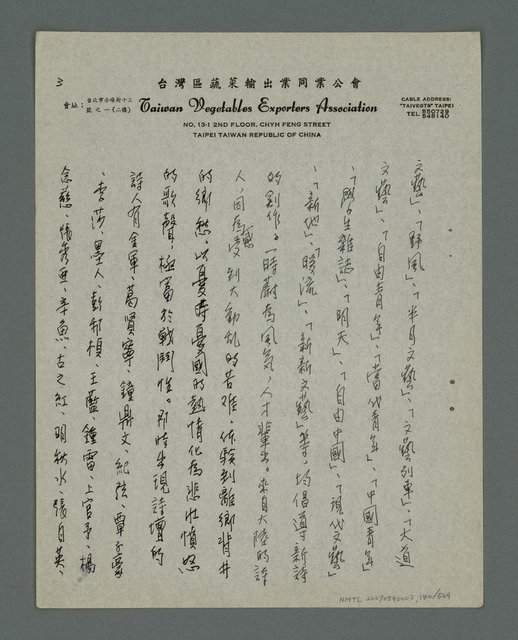 台灣區蔬菜輸出業同業公會
會址：台北市赤峰街十三號之一(二樓)
Taiwan Vegetables Exporters Association
NO. 13-1 2ND FLOOR. CHYH FENG STREET
TAIPEI TAIWAN REPUBLIC OF CHINA
CABLE ADDRESS:
"TAIVEGTS" TAIPEI
TEL
550729
545140
3
文藝」、「野風」、「半月文藝」、「文藝列車」、「大道
文藝」、「自由青年」、「當代青年」、「中國青年」
、「學生雜誌」、「明天」、「自由中國」、「現代文藝」
、「新地」、「暖流」、「新新文藝」等，均倡導新詩
的創作。一時蔚為風氣，人才輩出。來自大陸的詩
人，因為受到大動亂的苦難，体驗到離鄉背井
的鄉愁，以憂時憂國的熱情化為悲壯憤怒
的歌聲，極富於戰鬥性。那時出現詩壇的
詩人有金軍、葛賢寧、鍾鼎文、紀弦、覃子豪
、李莎、墨人、彭邦楨、王藍、鍾雷、上官予、楊
念慈、張秀亞、辛魚、古之紅、明秋水、張自英、
NMTL 20070590002, 140/509